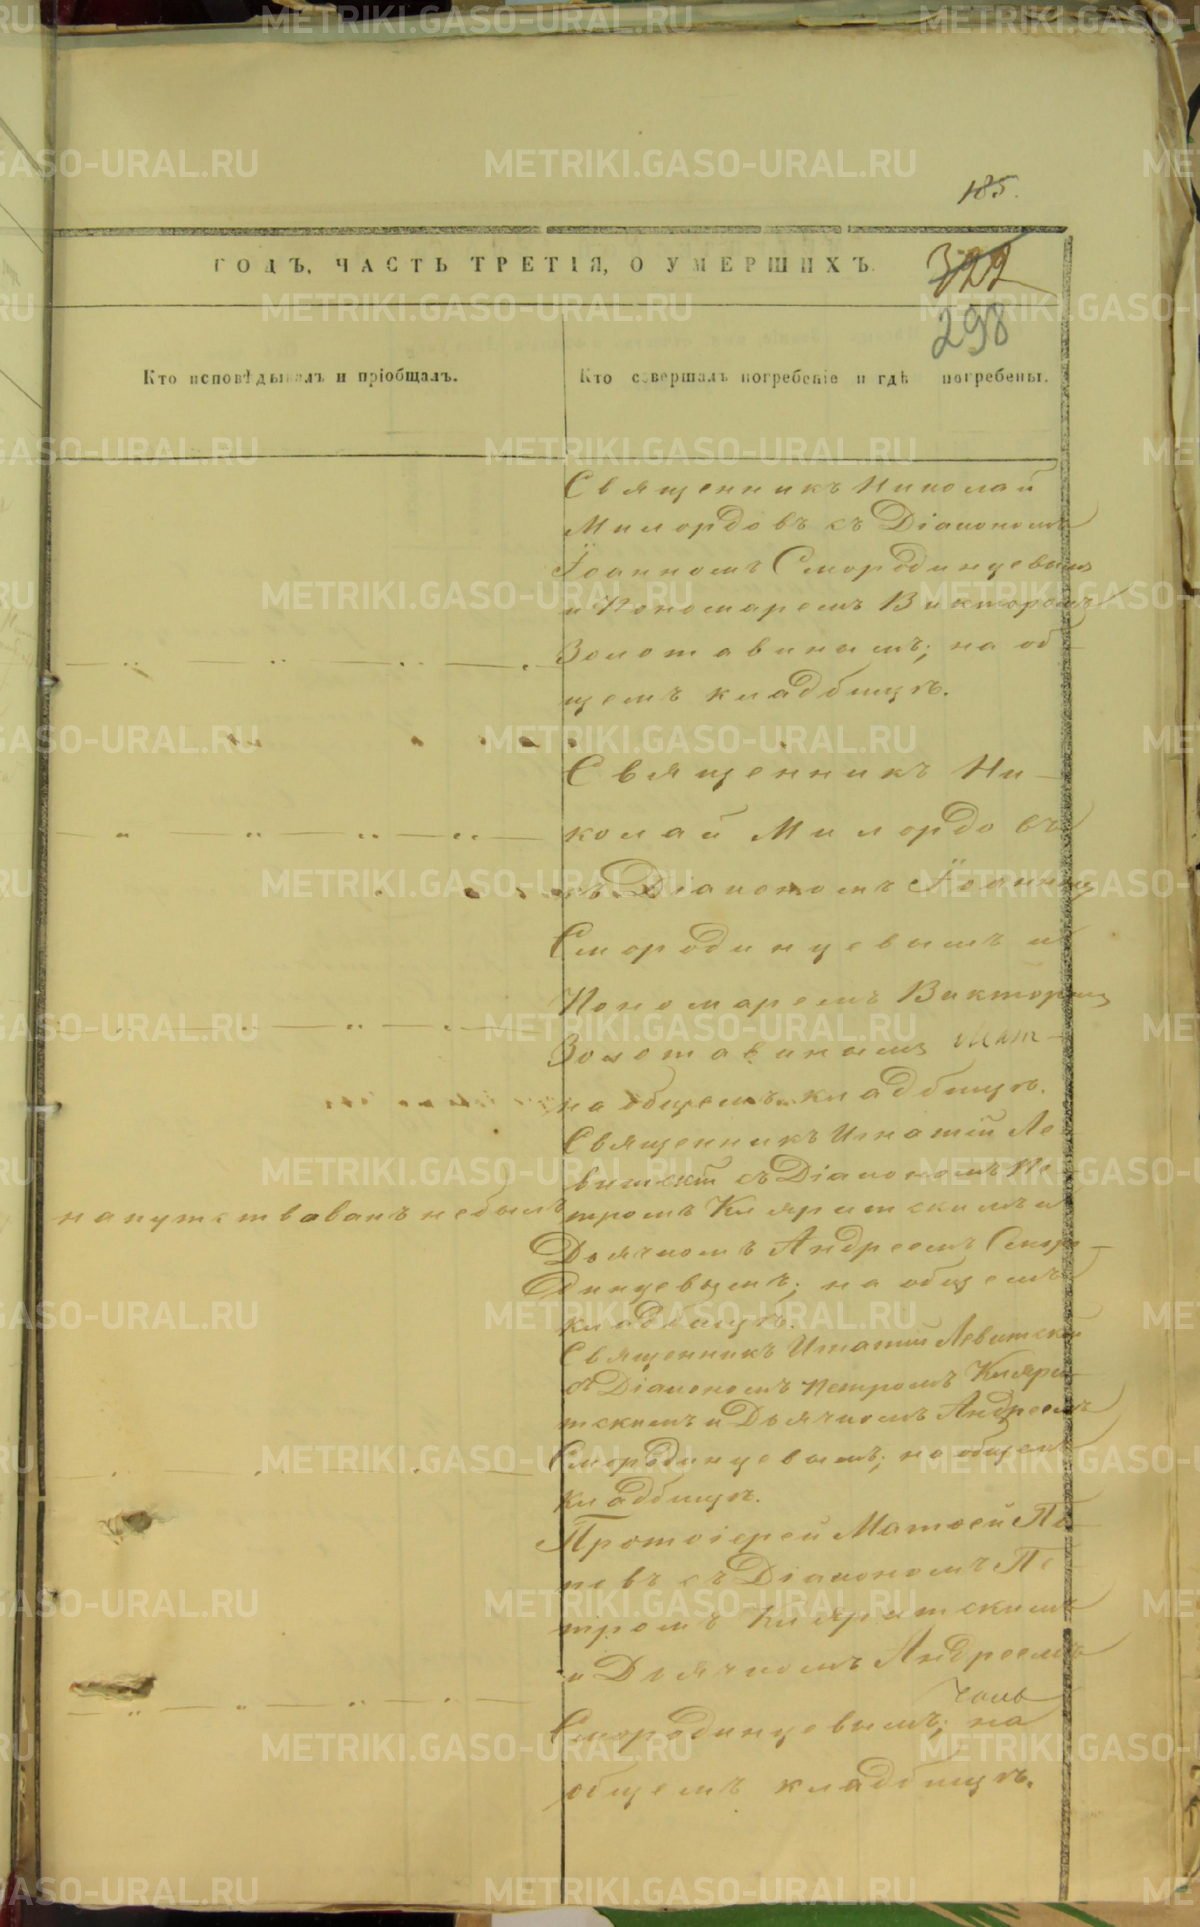 185.
ГОДЪ, ЧАСТЬ ТРЕТІЯ, О УМЕРШИХЪ.
322
298
Кто исповѣдывалъ и пріобщалъ.
Кто совершалъ погребеніе и гдѣ погребены.
Священникъ Николай
Милордовъ съ Діакономъ
Іоанномъ Смородинцевымъ
и Пономаремъ Викторомъ
Золотавинымъ; на об
щемъ кладбищѣ.
Священникъ Ни-
колай Милордовъ
съ Діакономъ Іоанномъ
Смородинцевымъ и
Пономаремъ Викторомъ
Золотавинымъ
на общемъ кладбищѣ.
Священникъ Игнатій Ле-
витскій съ Діакономъ Пе-
напутствованъ небылъ
тромъ Кляритскимъ и
Дьячкомъ Андреемъ Сморо-
динцевымъ; на общемъ
кладбищѣ.
Священникъ Игнатій Левитскій
съ Діакономъ Петромъ Кляри-
тскимъ и Дьячкомъ Андреемъ
Смородинцевымъ; на общемъ
кладбищѣ.
Протоіерей Матѳей По-
повъ съ Діакономъ Пе-
тромъ Кляритскимъ
и Дьячкомъ Андреемъ
Смородинцевымъ; на
общемъ кладбищѣ.
METRIKI.GASO-URAL.RU